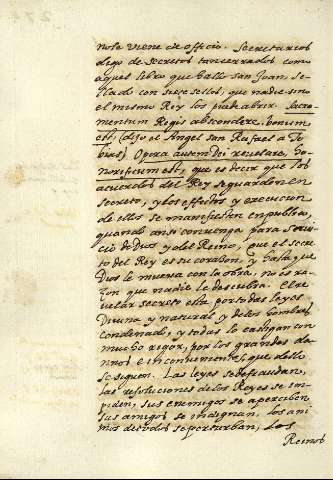 nola viene de officio. Secretarios
digo de secretos tan cerrados como
aquel libro que hallo san Juan, se-
llado con siete sellos, que nadie sino
el mismo Rey los puede abrir. Sacra-
mentum Regis abscondere, bonum
est, (dijo el Angel san Rafael a To-
bias) Opera autem Dei revelare, ho-
norificum est, que es decir que los
acuerdos del Rey se guarden en
secreto, y los effectos y execucion
de ellos se manifiesten en publico,
quando ansi convenga para servi-
cio de Dios y del Reino, que el secre-
to del Rey es su coraçon, y hasta que
Dios le mueva con la obra, no es ra-
çon que nadie le descubra. El re-
velar secretos esta por todas leyes
Divina y natural y de los hombres
condenado, y todas lo castigan con
mucho rigor, por los grandes da-
nnos e inconvenientes, que dello
se siguen. Las leyes se defraudan,
las resoluciones de los Reyes se im-
piden, sus enemigos se aperciben
sus amigos se indignan. los ani-
mos de todos se perturban, los
Reinos